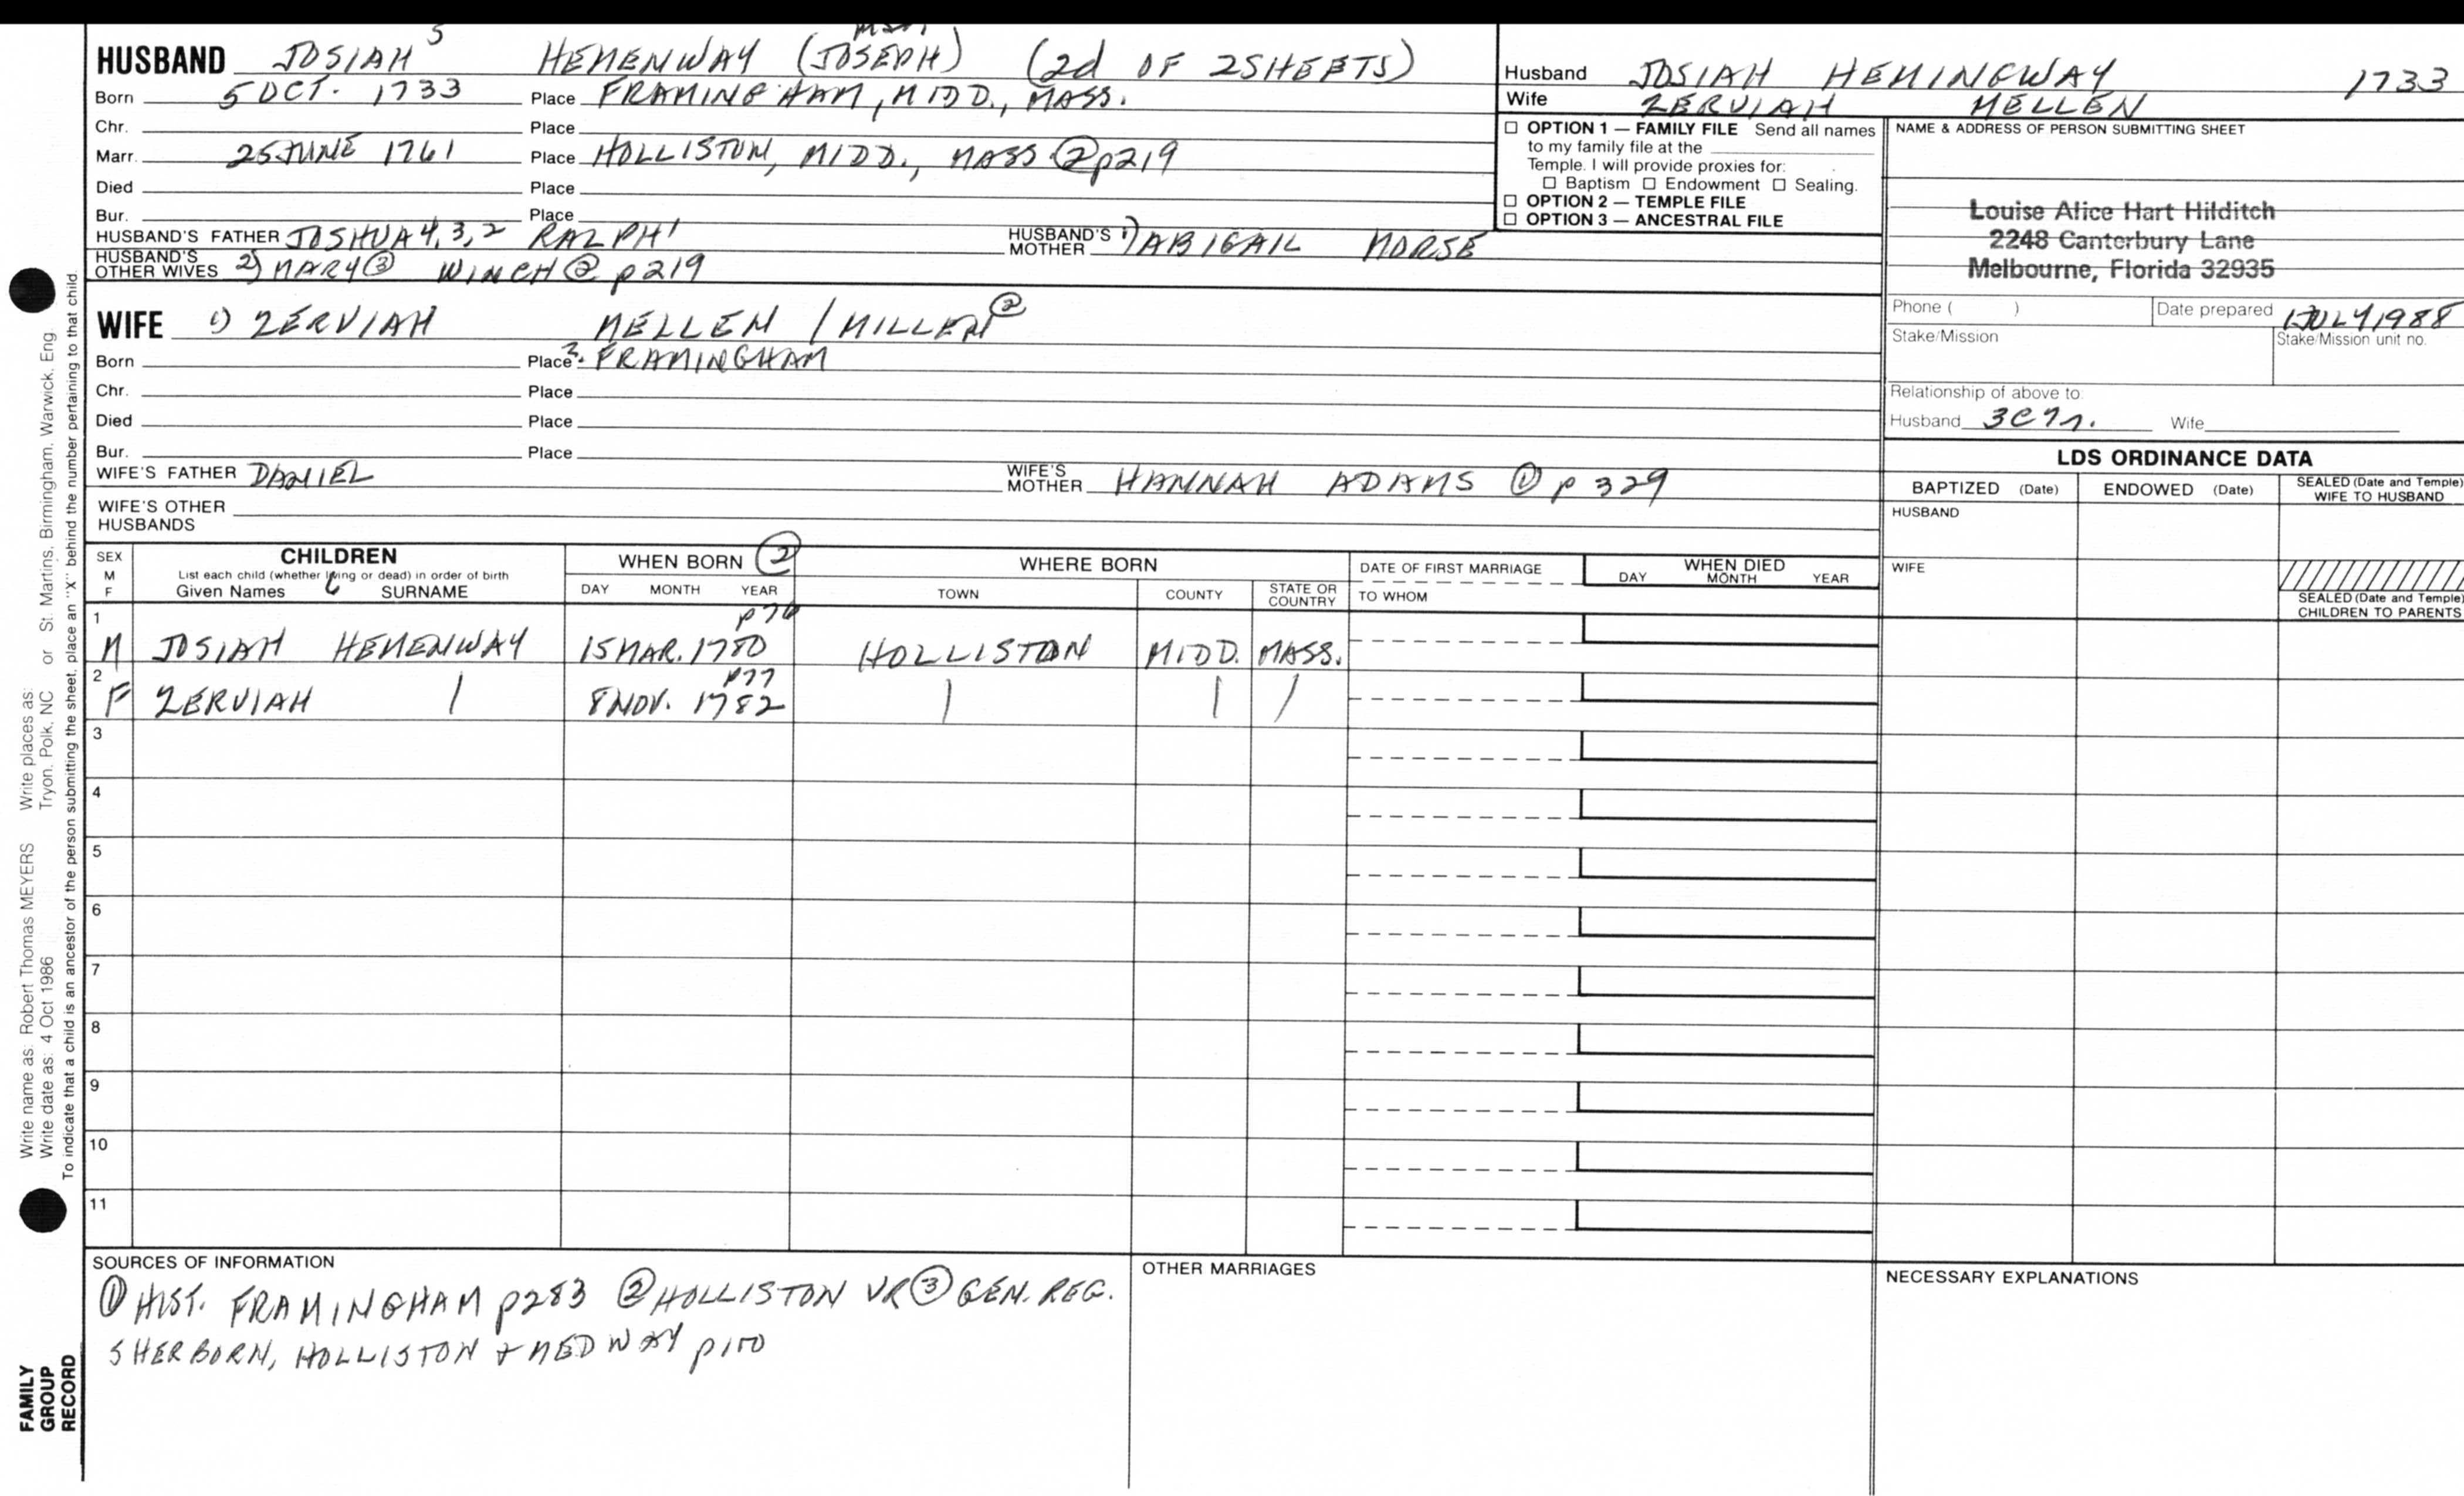 HUSBAND JOSIAH 5 HEMENWAY (JOSEPH) (2d OF 2 SHEETS)
Born 5 OCT. 1733 Place FRAMINGHAM, MIDD., MASS.
Chr. Place
Marr. 25 JUNE 1761 Place HOLLISTON, MIDD., MASS ② p219
Died Place
Bur. Place
HUSBAND'S FATHER JOSHUA 4,3,2 RALPH 1 HUSBAND'S MOTHER 1) ABIGAIL MORSE
HUSBAND'S OTHER WIVES 2) MARY ③ WINCH ② p219
Husband JOSIAH HEMINGWAY 1733
Wife ZERVIAH MELLEN
☐ OPTION 1 — FAMILY FILE Send all names
to my family file at the
Temple. I will provide proxies for:
☐ Baptism ☐ Endowment ☐ Sealing.
☐ OPTION 2 — TEMPLE FILE
☐ OPTION 3 — ANCESTRAL FILE
NAME & ADDRESS OF PERSON SUBMITTING SHEET
Louise Alice Hart Hilditch
2248 Canterbury Lane
Melbourne, Florida 32935
Phone ( ) Date prepared 1 JULY 1988
Stake/Mission Stake/Mission unit no.
Relationship of above to:
Husband 3C7r. Wife
WIFE 1) ZERVIAH MELLEN / MILLEN ②
Born Place ?. FRAMINGHAM
Chr. Place
Died Place
Bur. Place
WIFE'S FATHER DANIEL WIFE'S MOTHER HANNAH ADAMS ① p 329
WIFE'S OTHER HUSBANDS
LDS ORDINANCE DATA
BAPTIZED (Date) ENDOWED (Date) SEALED (Date and Temple) WIFE TO HUSBAND
HUSBAND
WIFE
SEALED (Date and Temple) CHILDREN TO PARENTS
SEX M F
CHILDREN
List each child (whether living or dead) in order of birth
Given Names 6 SURNAME
WHEN BORN ②
DAY MONTH YEAR
WHERE BORN
TOWN COUNTY STATE OR COUNTRY
DATE OF FIRST MARRIAGE
TO WHOM
WHEN DIED
DAY MONTH YEAR
p76
1 M JOSIAH HEMENWAY 15 MAR. 1780 HOLLISTON MIDD. MASS.
p77
2 F ZERVIAH | 8 NOV. 1782 | | /
3
4
5
6
7
8
9
10
11
SOURCES OF INFORMATION
① HIST. FRAMINGHAM p283 ② HOLLISTON VR ③ GEN. REG.
SHERBORN, HOLLISTON + MEDWAY p100
OTHER MARRIAGES
NECESSARY EXPLANATIONS
FAMILY
GROUP
RECORD
Write name as: Robert Thomas MEYERS Write places as: or St. Martins, Birmingham, Warwick, Eng.
Write date as: 4 Oct 1986 Tryon, Polk, NC
To indicate that a child is an ancestor of the person submitting the sheet, place an "X" behind the number pertaining to that child.